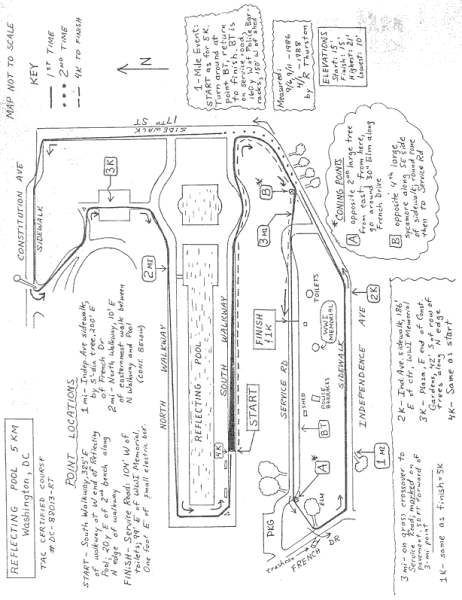 REFLECTING POOL 5 KM
Washington, DC
TAC CERTIFIED COURSE
# DC-89013-RT
POINT LOCATIONS
START - South Walkway, 325' E
of walkway at W end of Reflecting
Pool; 20' E of 2nd bench along
N edge of walkway
FINISH - Service Road: 104' W of
toilets; 99' E of WWI Memorial.
One foot E of small electric bar.
1 mi - Indep. Ave sidewalk,
by 5" dia tree, 200' E
of French Dr
2 mi - North Walkway, 10' E
of easternmost walk between
N Walkway and Pool
(CONT. BELOW)
MAP NOT TO SCALE
KEY
1ST TIME
2ND TIME
4K TO FINISH
N
1-Mile Event:
START as for 5K.
Turn around at
point BT, return
to finish. BT is
on service road,
160' W of Police Bar-
racks, 150' W of shed
Measured:
9/6, 9/11 - 1986
4/1 - 1988
by R Thurston
ELEVATIONS
Start: 15'
Finish: 15'
Highest: 21'
Lowest: 10'
CONSTITUTION AVE
SIDEWALK
SIDEWALK
17TH ST
3K
2 MI
NORTH WALKWAY
REFLECTING POOL
SOUTH WALKWAY
4K
START
3 MI
B
FINISH
1K
SERVICE RD
TOILETS
WWI
MEMORIAL
SHED
POLICE
BARRACKS
BT
A
ELM
PKG
trashcan
FRENCH DR
SIDEWALK
INDEPENDENCE AVE
2K
1 MI
*CONING POINTS
A opposite 2nd large tree
from east. From here,
go around 30" Elm along
French Drive
B opposite 4th large
sycamore along SE side
of Sidewalk; round cone
then to Service Rd
3 mi - on grass crossover to
Service Road; marked on
pavement, 50 ft forward of
3-mi point
1K - same as finish = 5K
2K - Ind. Ave sidewalk, 186'
E of ctr, WWI Memorial
3K - Plaza, E end of Const.
Gardens, 42' S of row of
trees along N edge
4K - Same as start